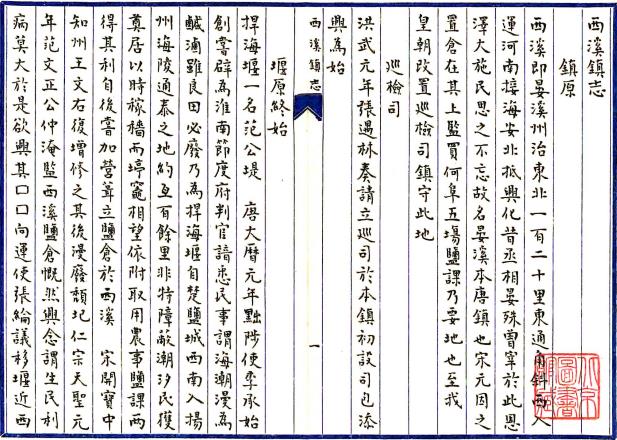 西溪鎮志
鎮原
西溪即晏溪州治東北一百二十里東通角斜西入
運河南接海安北抵興化昔丞相晏殊曽宰於此恩
澤大施民思之不忘故名晏溪本唐鎮也宋元因之
置倉在其上監買何阜五塲鹽課乃要地也至我
皇朝改置巡檢司鎮守此地
巡檢司
洪武元年張遇林奏請立巡司於本鎮初設司也添
興為始
西溪鎮志
一
堰原終始
捍海堰一名范公堤 唐大曆元年黜陟使李承始
創嘗辟為淮南節度府判官諳悉民事謂海潮漫為
鹹滷雖良田必廢乃為捍海堰自楚鹽城西南入揚
州海陵通泰之地約亙百餘里非特障蔽潮汐民獲
奠居以時稼穡而塲竈相望依附取用農事鹽課兩
得其利自後嘗加營葺立鹽倉於西溪 宋開寶中
知州王文右復增修之其後漫廢頹圮仁宗天聖元
年范文正公仲淹監西溪鹽倉慨然興念謂生民利
病莫大於是欲興其口口向運使張綸議移堰近西